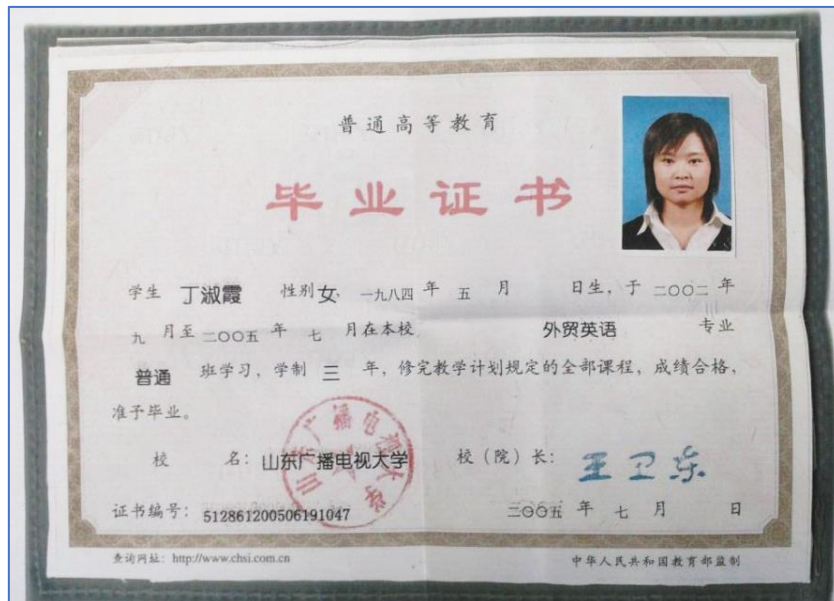 普通高等教育
毕业证书
学生 丁淑霞 性别 女, 一九八四 年 五 月 日生，于 二〇〇二 年
九 月至 二〇〇五 年 七 月在本校 外贸英语 专业
普通 班学习，学制 三 年，修完教学计划规定的全部课程，成绩合格，
准予毕业。
校 名：山东广播电视大学 校（院）长：王卫东
山东广播电视大学
证书编号：512861200506191047 二〇〇五 年 七 月 日
查询网址：http://www.chsi.com.cn 中华人民共和国教育部监制